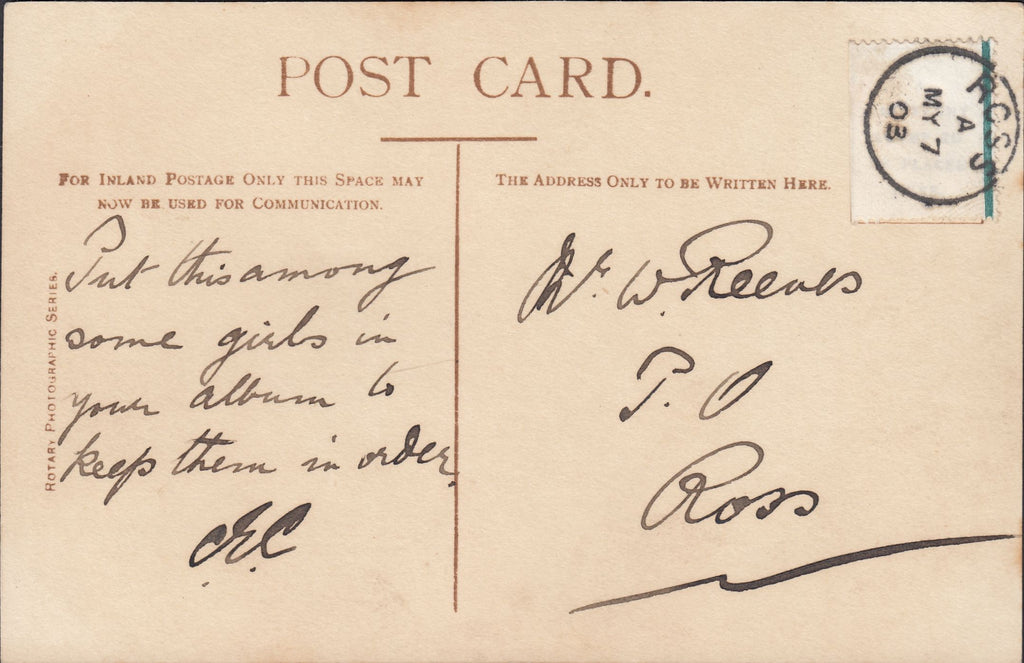 POST CARD.
FOR INLAND POSTAGE ONLY THIS SPACE MAY
NOW BE USED FOR COMMUNICATION.
THE ADDRESS ONLY TO BE WRITTEN HERE.
ROSS
A
MY 7
03
ROTARY PHOTOGRAPHIC SERIES.
Put this among
some girls in
your album to
keep them in order.
W. Reeves
P. O
Ross